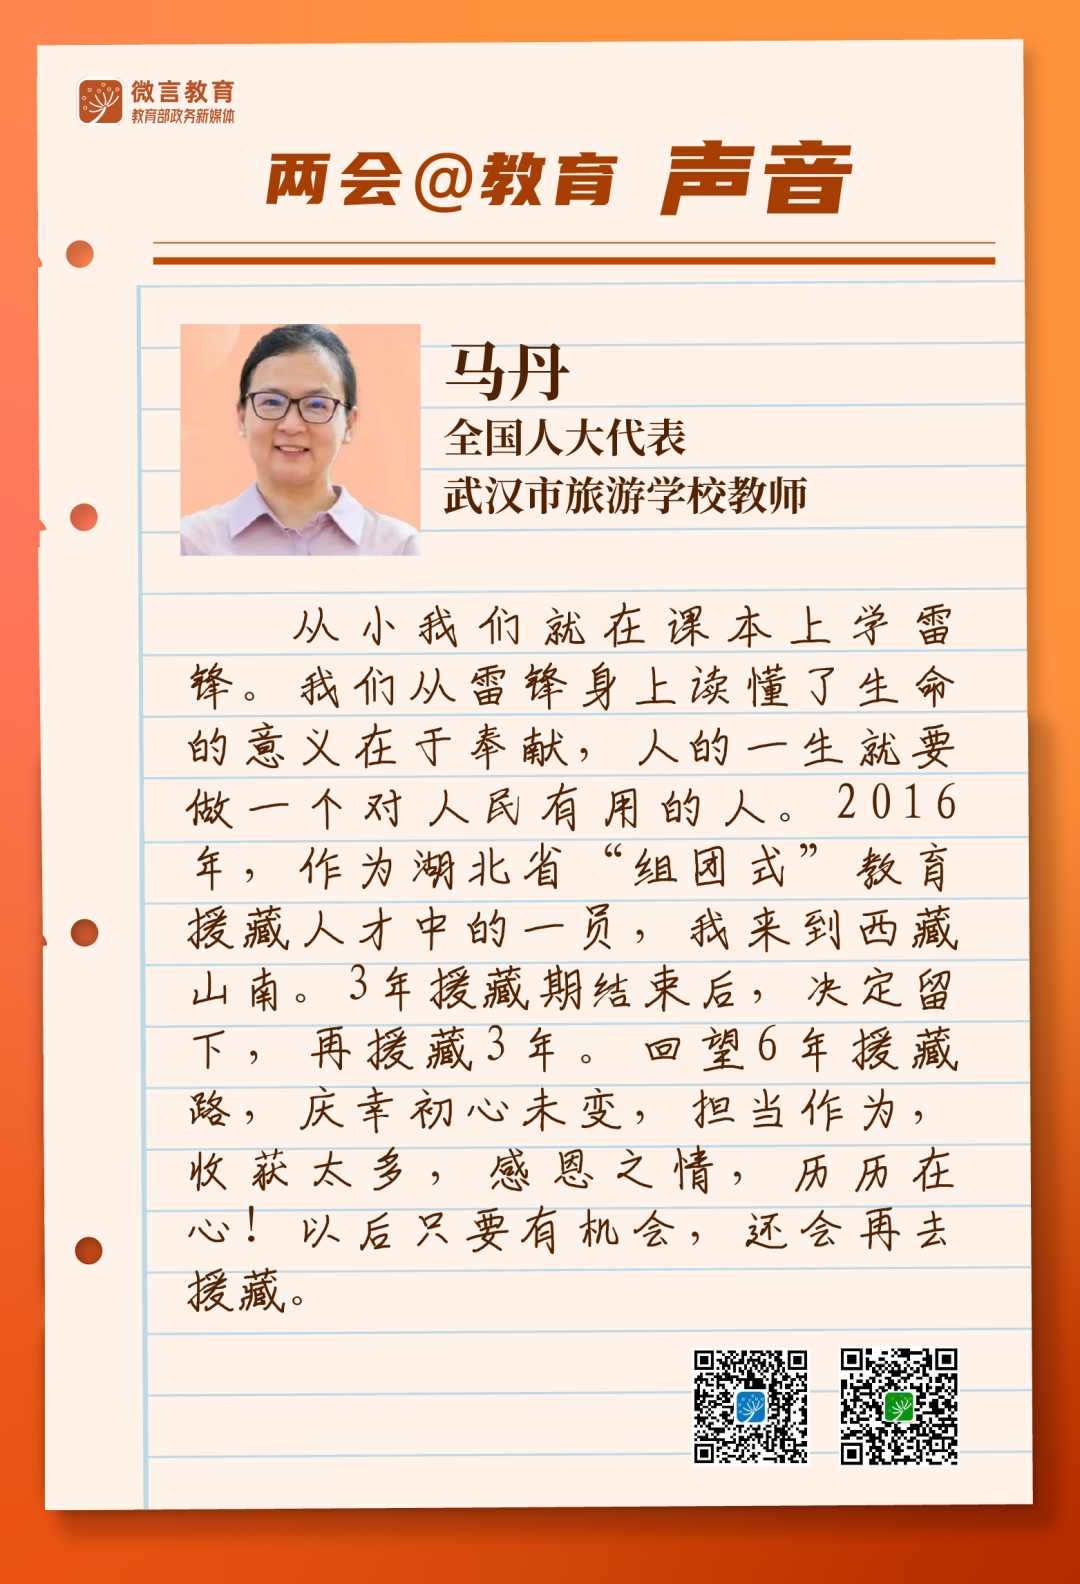 微言教育
教育部政务新媒体
两会@教育 声音
马丹
全国人大代表
武汉市旅游学校教师
从小我们就在课本上学雷
锋。我们从雷锋身上读懂了生命
的意义在于奉献，人的一生就要
做一个对人民有用的人。2016
年，作为湖北省“组团式”教育
援藏人才中的一员，我来到西藏
山南。3年援藏期结束后，决定留
下，再援藏3年。回望6年援藏
路，庆幸初心未变，担当作为，
收获太多，感恩之情，历历在
心！以后只要有机会，还会再去
援藏。